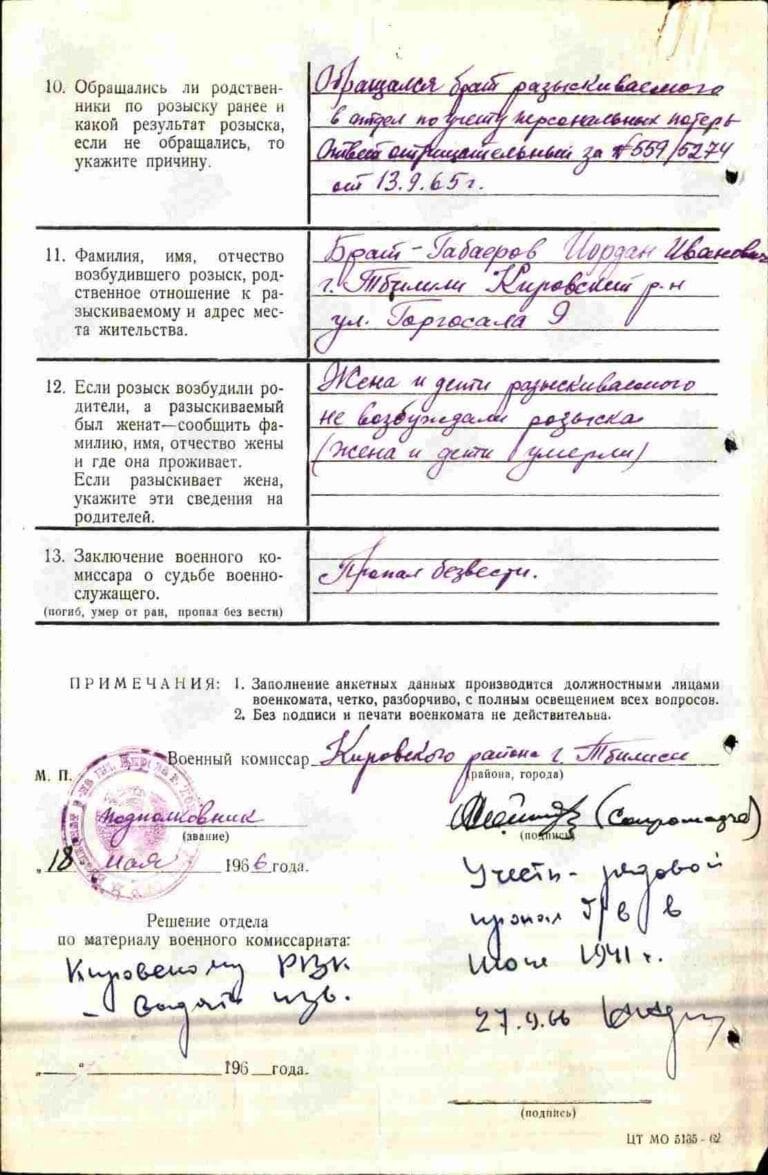 10. Обращались ли родствен-
ники по розыску ранее и
какой результат розыска,
если не обращались, то
укажите причину.
Обращался брат разыскиваемого
в отдел по учету персональных потерь
Ответ отрицательный за №559/5274
от 13.9.65 г.
11. Фамилия, имя, отчество
возбудившего розыск, род-
ственное отношение к ра-
зыскиваемому и адрес мес-
та жительства.
Брат - Габаеров Иордан Иванович
г. Тбилиси Кировский р-н
ул. Горгосала 9
12. Если розыск возбудили ро-
дители, а разыскиваемый
был женат—сообщить фа-
милию, имя, отчество жены
и где она проживает.
Если разыскивает жена,
укажите эти сведения на
родителей.
Жена и дети разыскиваемого
не возбуждали розыска
(жена и дети умерли)
13. Заключение военного ко-
миссара о судьбе военно-
служащего.
(погиб, умер от ран, пропал без вести)
Пропал безвести.
ПРИМЕЧАНИЯ: 1. Заполнение анкетных данных производится должностными лицами
военкомата, четко, разборчиво, с полным освещением всех вопросов.
2. Без подписи и печати военкомата не действительна.
Военный комиссар Кировского района г. Тбилиси
(района, города)
М. П.
подполковник
(звание)
(подпись)
„18" мая 1966 года.
Учесть - рядовой
пропал б/в в
1941 г.
27.9.66
Решение отдела
по материалу военного комиссариата:
Кировскому РВК
- выдать изв.
„ " 196 года.
(подпись)
ЦТ МО 5135 - 62